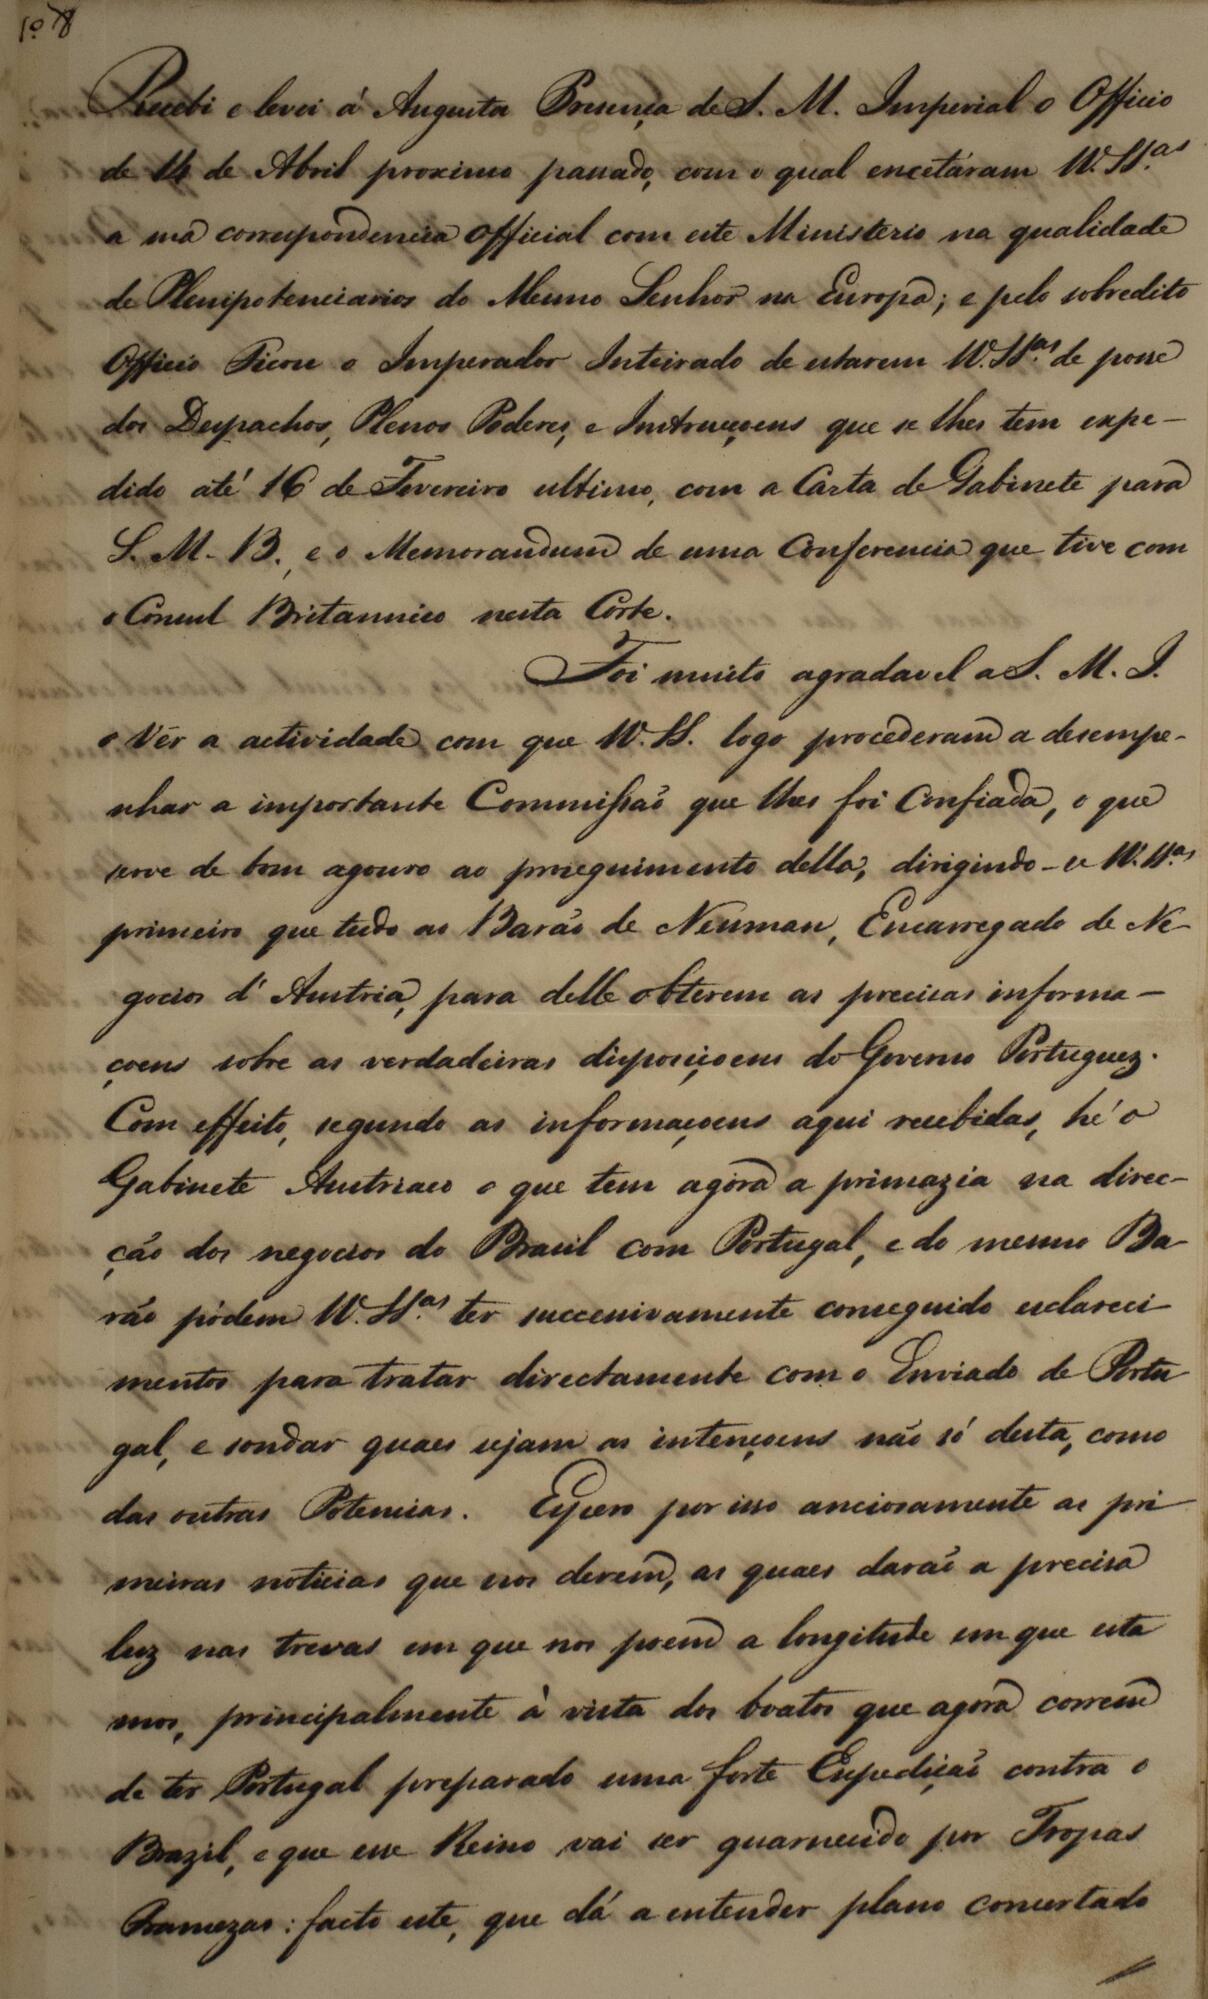 Nº 8
Recebi e levei á Augusta Presença de S. M. Imperial o Officio
de 14 de Abril proximo passado, com o qual encetáram V. S.ªs
a sua correspondencia official com este Ministerio na qualidade
de Plenipotenciarios do Mesmo Senhor na Europa; e pelo sobredito
Officio Ficou o Imperador Inteirado de estarem V. S.ªs de posse
dos Despachos, Plenos Poderes, e Instrucçoens que se lhes tem expe-
dido até 16 de Fevereiro ultimo, com a Carta de Gabinete para
S. M. B., e o Memorandum de uma Conferencia que tive com
o Consul Britannico nesta Corte.
Foi muito agradavel a S. M. I.
o Vêr a actividade com que V. S. logo procederam a desempe-
nhar a importante Commissão que lhes foi Confiada, o que
serve de bom agouro ao proseguimento della; dirigindo-se V. S.ªs
primeiro que tudo ao Barão de Neuman, Encarregado de Ne-
gocios d'Austria, para delle obterem as precisas informa-
çoens sobre as verdadeiras disposiçoens do Governo Portuguez.
Com effeito, segundo as informaçoens aqui recebidas, hé o
Gabinete Austriaco o que tem agora a primazia na direc-
ção dos negocios do Brasil com Portugal, e do mesmo Ba-
rão pódem V. S.ªs ter successivamente conseguido esclareci-
mentos para tratar directamente com o Enviado de Portu-
gal, e sondar quaes sejam as intençoens não só desta, como
das outras Potencias. Espero por isso anciosamente as pri-
meiras noticias que nos derem, as quaes darão a precisa
luz nas trevas em que nos poem a longitude em que esta
mos, principalmente à vista dos boatos que agora correm
de ter Portugal preparado uma forte Expedição contra o
Brazil, e que esse Reino vai ser guarnecido por Tropas
Francezas: facto este, que dá a entender plano concertado